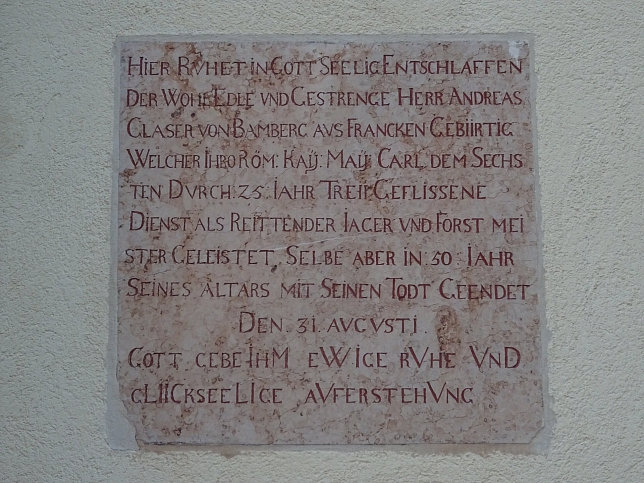 HIER RVHET IN GOTT SEELIG ENTSCHLAFFEN
DER WOHL EDLE VND GESTRENGE HERR ANDREAS
GLASER VON BAMBERG AVS FRANCKEN GEBIIRTIG
WELCHER IHRO RÖM: KAŸ: MAŸ: CARL DEM SECHS
TEN DVRCH 25 IAHR TREII GEFLISSENE
DIENST ALS REITTENDER IAGER VND FORST MEI
STER GELEISTET, SELBE ABER IN 50: IAHR
SEINES ALTARS MIT SEINEN TODT GEENDET
DEN 31 AVGVSTI
GOTT GEBE IHM EWIGE RVHE VND
GLIICKSEELIGE AVFERSTEHVNG